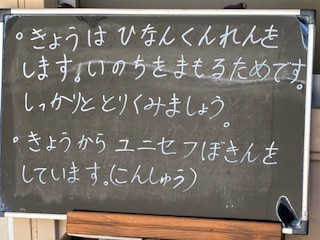 ・きょうは ひなんくんれんを
します。いのちをまもるためです。
しっかりととりくみましょう。
・きょうから ユニセフぼきんを
しています。(こんしゅう)